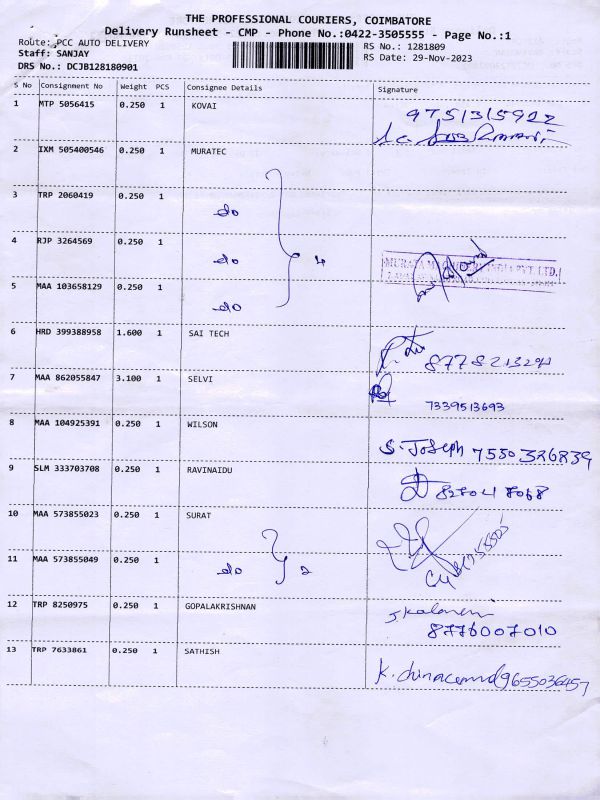 THE PROFESSIONAL COURIERS, COIMBATORE
Delivery Runsheet - CMP - Phone No.:0422-3505555 - Page No.:1
Route: PCC AUTO DELIVERY
RS No.: 1281809
Staff: SANJAY
RS Date: 29-Nov-2023
DRS No.: DCJB128180901
S No Consignment No Weight PCS Consignee Details Signature
1 MTP 5056415 0.250 1 KOVAI
2 IXM 505400546 0.250 1 MURATEC
3 TRP 2060419 0.250 1 do
4 RJP 3264569 0.250 1 do 4
5 MAA 103658129 0.250 1 do
6 HRD 399388958 1.600 1 SAI TECH
7 MAA 862055847 3.100 1 SELVI 7339513693
8 MAA 104925391 0.250 1 WILSON S. Joseph 7550326839
9 SLM 333703708 0.250 1 RAVINAIDU
10 MAA 573855023 0.250 1 SURAT
11 MAA 573855049 0.250 1 do 2
12 TRP 8250975 0.250 1 GOPALAKRISHNAN 8776007010
13 TRP 7633861 0.250 1 SATHISH 9655036457